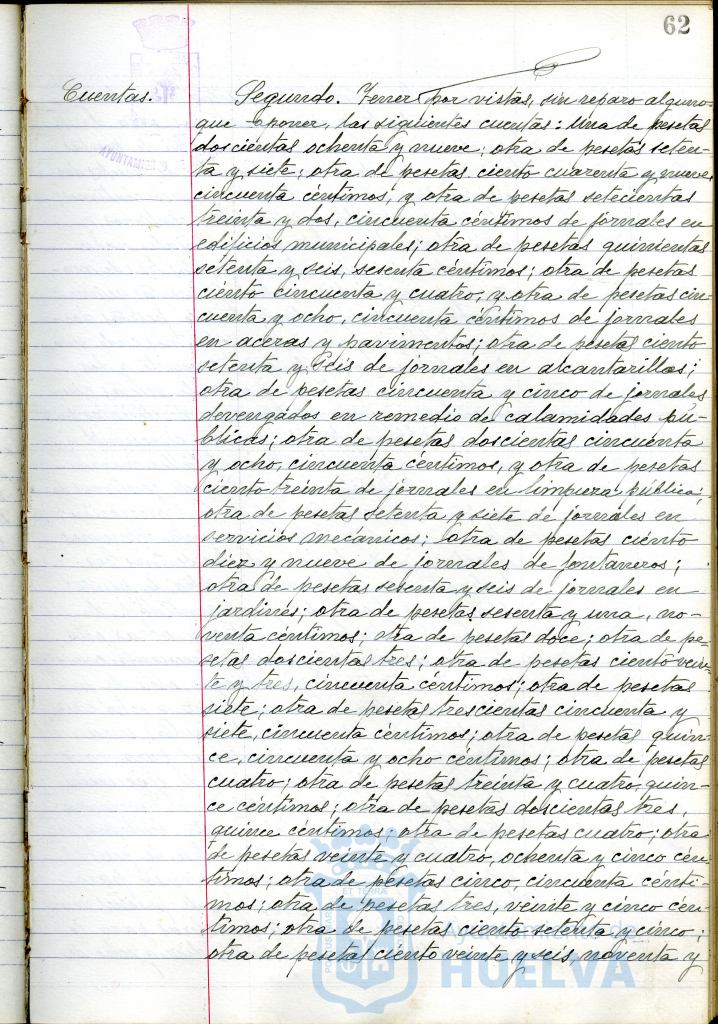 62
Cuentas.
Segundo. Tener por vistas, sin reparo alguno
que oponer, las siguientes cuentas: Una de pesetas
doscientas ochenta y nueve; otra de pesetas seten-
ta y siete; otra de pesetas ciento cuarenta y nueve,
cincuenta céntimos, y otra de pesetas setecientas
treinta y dos, cincuenta céntimos de jornales en
edificios municipales; otra de pesetas quinientas
setenta y seis, sesenta céntimos; otra de pesetas
ciento cincuenta y cuatro, y otra de pesetas cin-
cuenta y ocho, cincuenta céntimos de jornales
en aceras y pavimentos; otra de pesetas ciento
setenta y seis de jornales en alcantarillas;
otra de pesetas cincuenta y cinco de jornales
devengados en remedio de calamidades pú-
blicas; otra de pesetas doscientas cincuenta
y ocho, cincuenta céntimos, y otra de pesetas
ciento treinta de jornales en limpieza pública;
otra de pesetas setenta y siete de jornales en
servicios mecánicos; otra de pesetas ciento
diez y nueve de jornales de fontaneros;
otra de pesetas sesenta y seis de jornales en
jardines; otra de pesetas sesenta y una, no-
venta céntimos; otra de pesetas doce; otra de pe-
setas doscientas tres; otra de pesetas ciento vein-
te y tres, cincuenta céntimos; otra de pesetas
siete; otra de pesetas trescientas cincuenta y
siete, cincuenta céntimos; otra de pesetas quin-
ce, cincuenta y ocho céntimos; otra de pesetas
cuatro; otra de pesetas treinta y cuatro, quin-
ce céntimos; otra de pesetas doscientas tres,
quince céntimos; otra de pesetas cuatro; otra
de pesetas veinte y cuatro, ochenta y cinco cén-
timos; otra de pesetas cinco, cincuenta cénti-
mos; otra de pesetas tres, veinte y cinco cén-
timos; otra de pesetas ciento setenta y cinco;
otra de pesetas ciento veinte y seis, noventa y
HUELVA